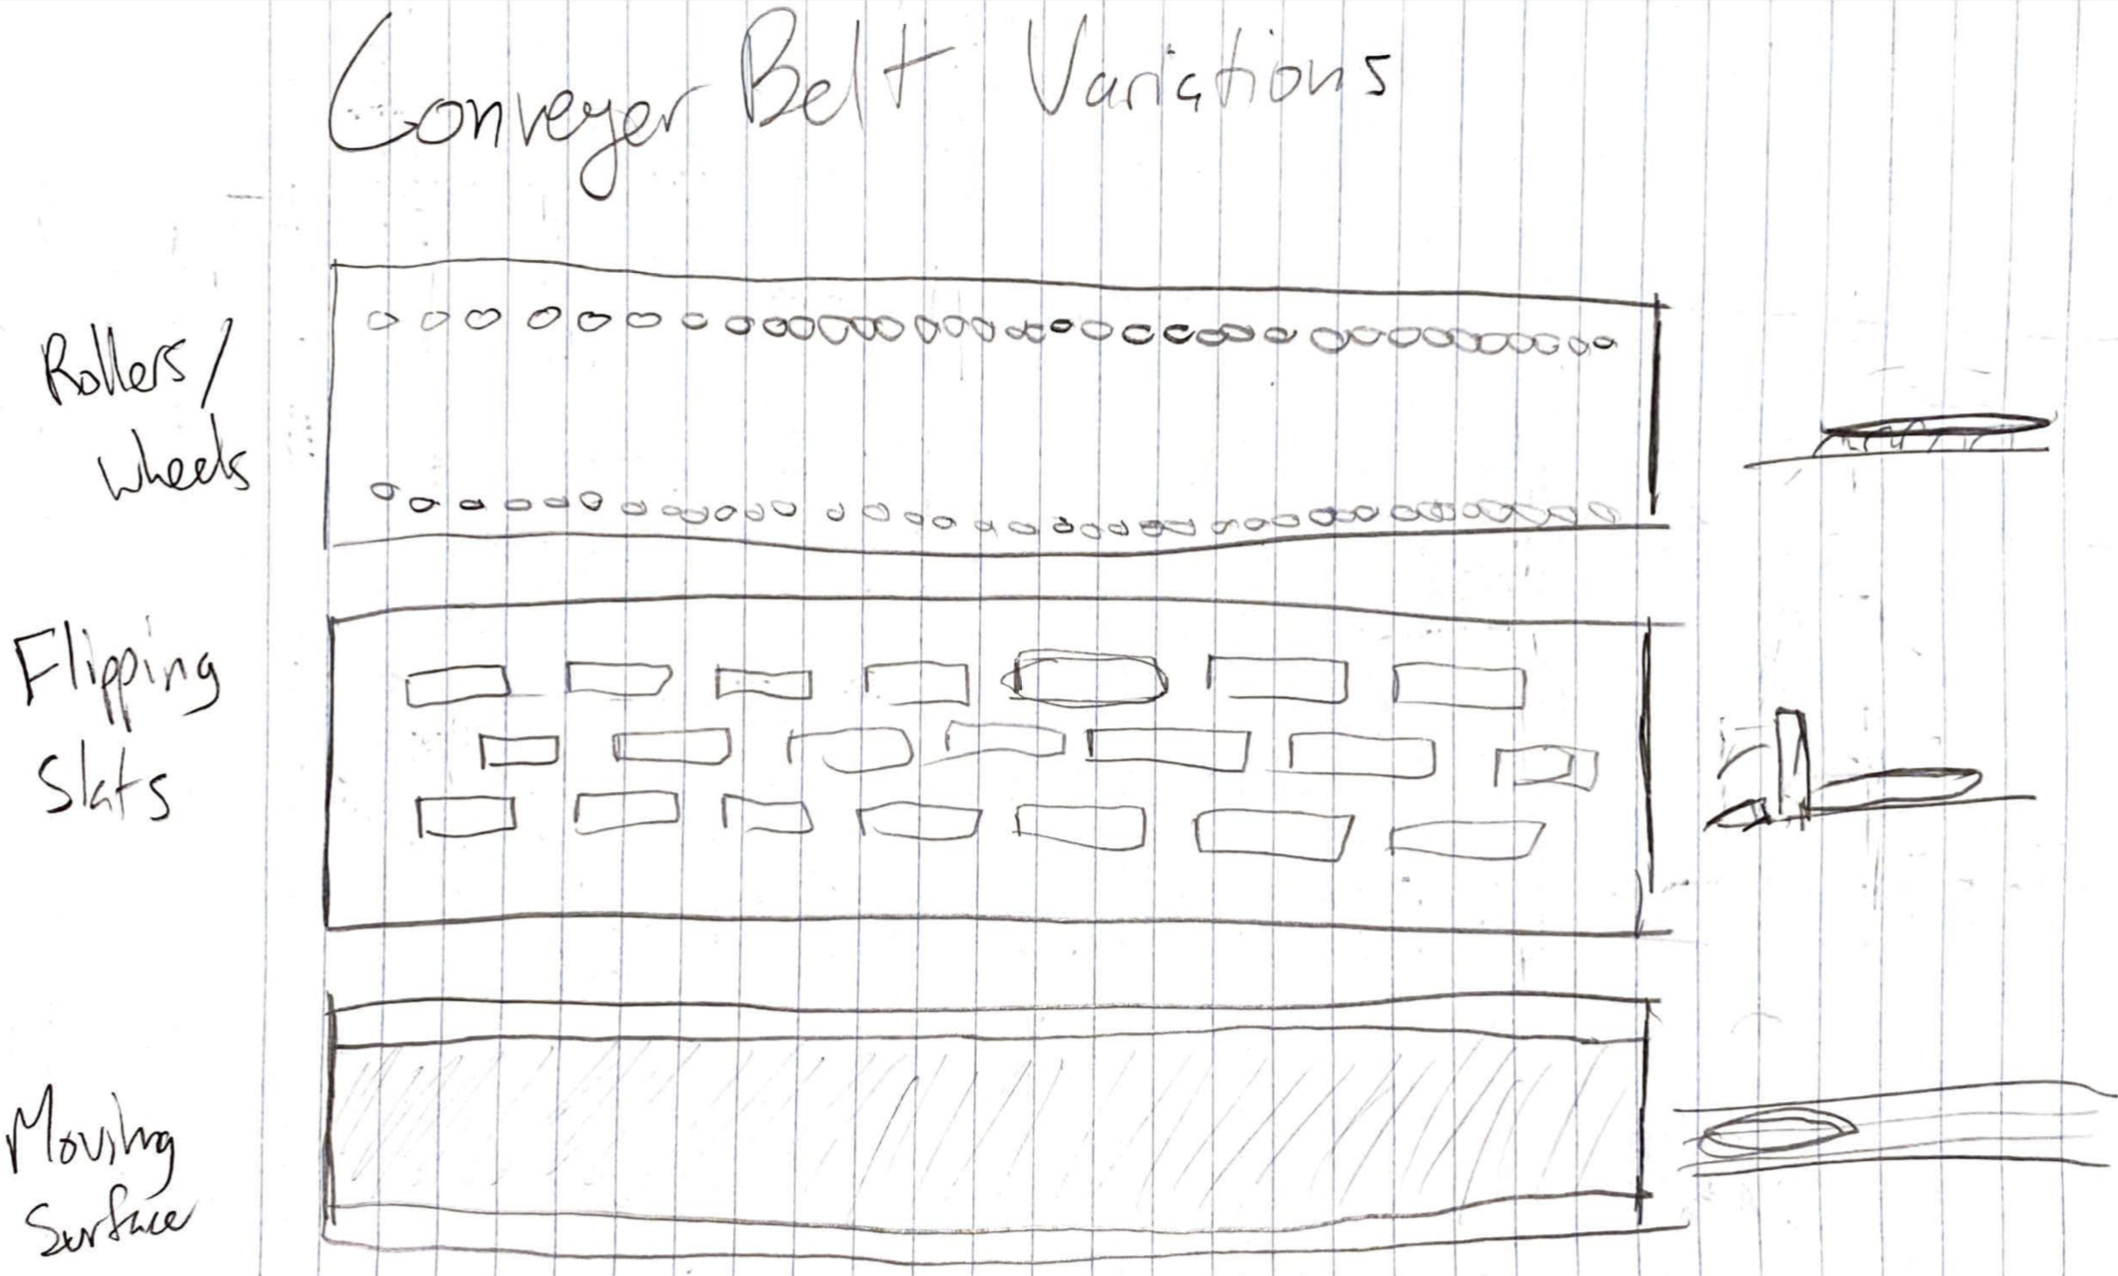 Conveyer Belt Variations
Rollers/
Wheels
Flipping
Slats
Moving
Surface